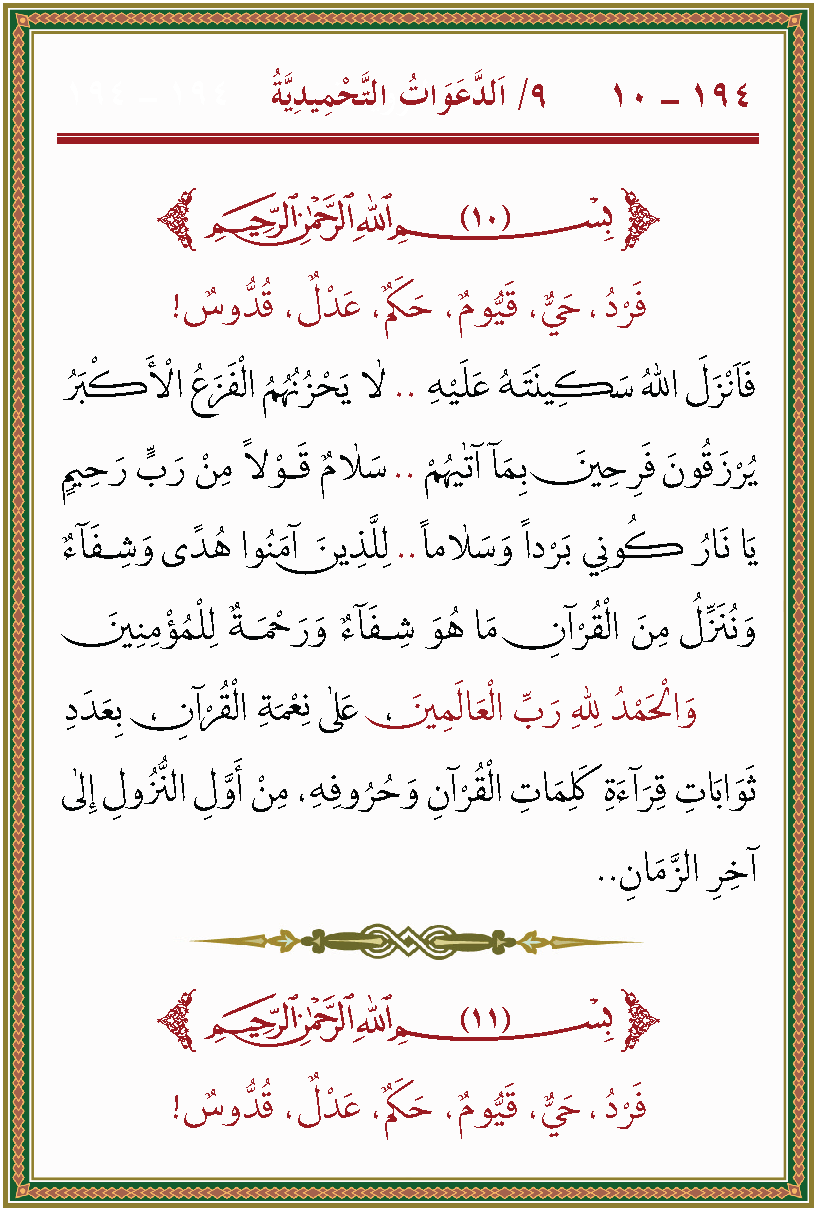 ١٩٤ – ١٠ ٩/ اَلدَّعَوَاتُ التَّحْمِيدِيَّةُ ١٩٤ – ١٩٤
بِسْمِ اللهِ الرَّحْمٰنِ الرَّحِيمِ (١٠)
فَرْدٌ، حَيٌّ، قَيُّومٌ، حَكَمٌ، عَدْلٌ، قُدُّوسٌ!
فَاَنْزَلَ اللهُ سَكِينَتَهُ عَلَيْهِ .. لاٰ يَحْزُنُهُمُ الْفَزَعُ الْأَكْبَرُ
يُرْزَقُونَ فَرِحِينَ بِمَآ آتٰيهُمْ .. سَلاٰمٌ قَوْلاً مِنْ رَبٍّ رَحِيمٍ
يَا نَارُ كُونِي بَرْداً وَسَلاٰماً .. لِلَّذِينَ آمَنُوا هُدًى وَشِفَآءٌ
وَنُنَزِّلُ مِنَ الْقُرْآنِ مَا هُوَ شِفَآءٌ وَرَحْمَةٌ لِلْمُؤْمِنِينَ
وَالْحَمْدُ لِلهِ رَبِّ الْعَالَمِينَ، عَلٰى نِعْمَةِ الْقُرْآنِ، بِعَدَدِ
ثَوَابَاتِ قِرَآءَةِ كَلِمَاتِ الْقُرْآنِ وَحُرُوفِهِ، مِنْ أَوَّلِ النُّزُولِ إِلىٰ
آخِرِ الزَّمَانِ..
بِسْمِ اللهِ الرَّحْمٰنِ الرَّحِيمِ (١١)
فَرْدٌ، حَيٌّ، قَيُّومٌ، حَكَمٌ، عَدْلٌ، قُدُّوسٌ!